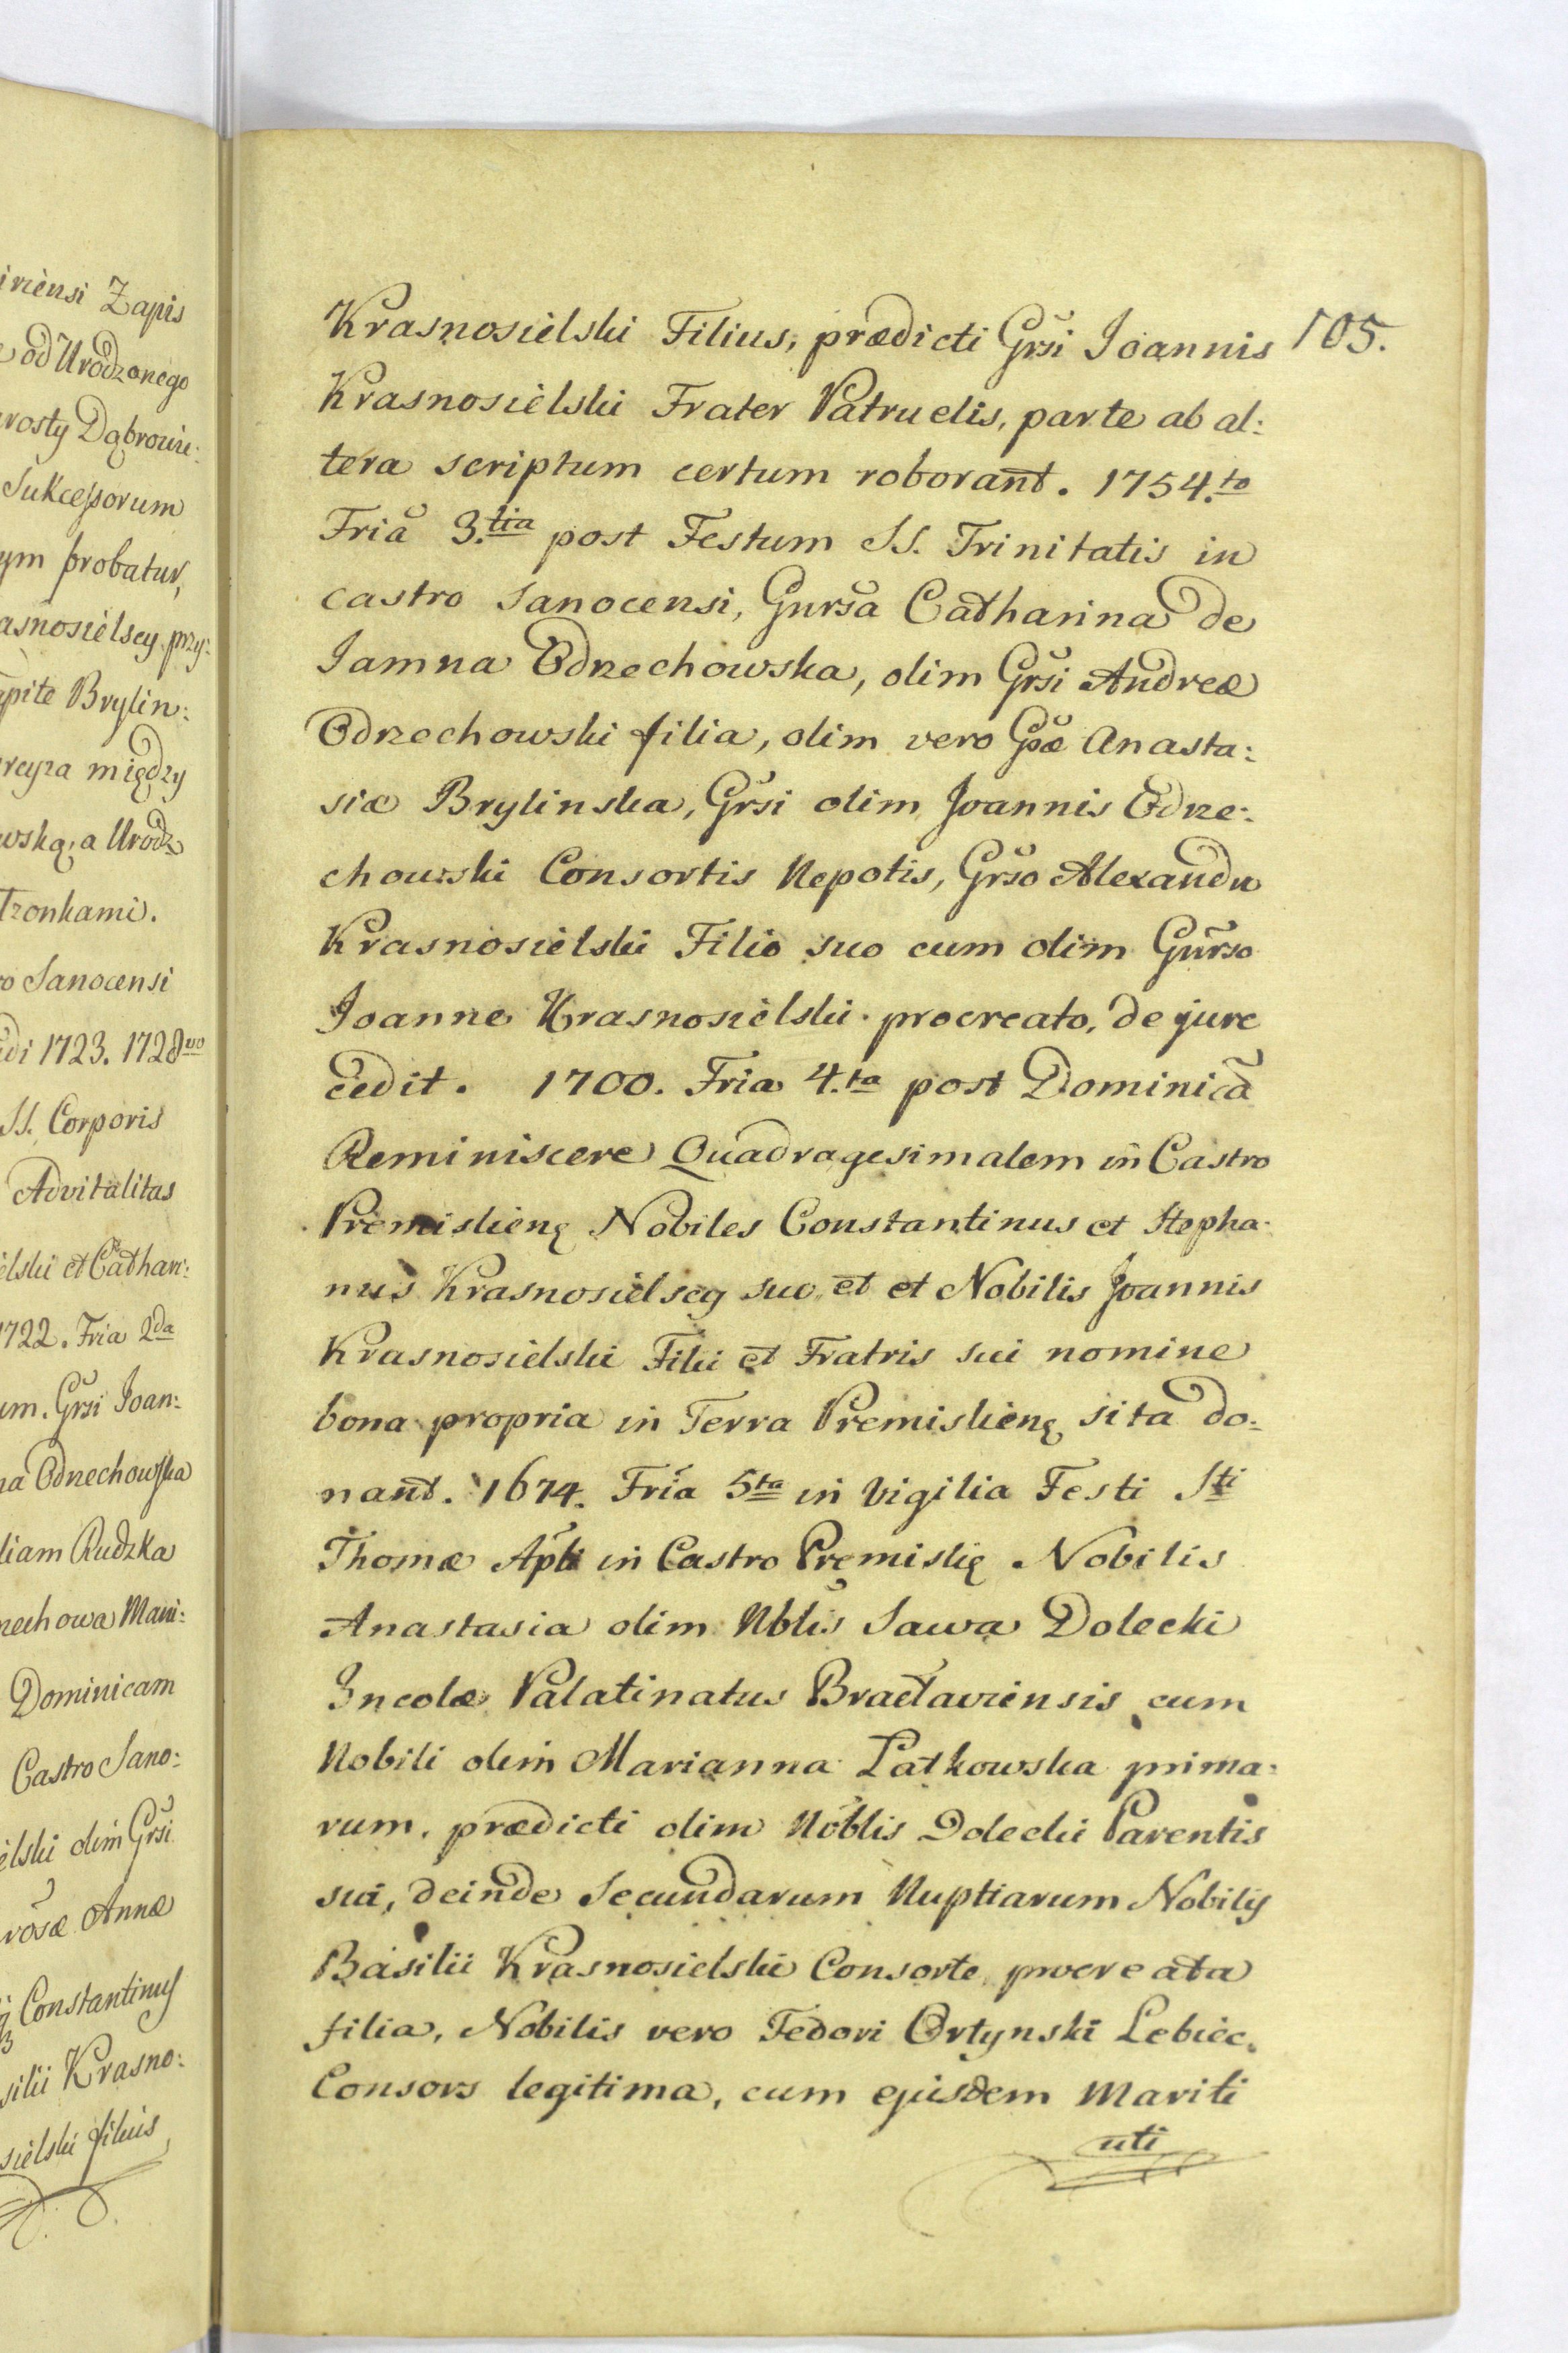 iriensi Zapis
od Urodzonego
rosty Dąbrowie:
Sukcessorum
ym probatur,
asnosielscy przy:
apite Brylin:
rcyza między
wską, a Urodz
Tzonkami.
o Sanocensi
di 1723. 1728vo
SS. Corporis
Advitalitas
elski et Cathari:
1722. Fria 2da
um. Grsi Joan:
na Odrzechowska
liam Rudzka
rzechowa Mari:
Dominicam
Castro Sano:
elski olim Grsi
rosæ Annæ
Constantinus
silii Krasno:
sielski filius,
105.
Krasnosielski Filius, prædicti Grsi Joannis
Krasnosielski Frater Patruelis, parte ab al:
tera scriptum certum roborant. 1754.to
Fria 3.tia post Festum SS. Trinitatis in
castro Sanocensi, Gnrsa Catharina de
Jamna Odrzechowska, olim Grsi Andreæ
Odrzechowski filia, olim vero Gsæ Anasta:
siæ Brylinska, Grsi olim Joannis Odrze:
chowski Consortis Nepotis, Grso Alexandro
Krasnosielski Filio suo cum olim Gnrso
Joanne Krasnosielski procreato, de jure
cedit. 1700. Fria 4.ta post Dominicã
Reminiscere Quadragesimalem in Castro
Premislieñ Nobiles Constantinus et Stepha:
nus Krasnosielscy suo et et Nobilis Joannis
Krasnosielski Filii et Fratris sui nomine
bona propria in Terra Premislieñ sita do:
nant. 1674. Fria 5ta in Vigilia Festi Sti
Thomæ Apli in Castro Premislię Nobilis
Anastasia olim Nblis Sawa Dolecki
Incolæ Palatinatus Bractaviensis cum
Nobili olim Marianna Latkowska prima:
rum, prædicti olim Noblis Dolecki Parentis
sui, deinde Secundarum Nuptiarum Nobilis
Basilii Krasnosielski Consorte procreata
filia, Nobilis vero Fedori Ortynski Lebiec.
Consors legitima, cum ejusdem Mariti
uti